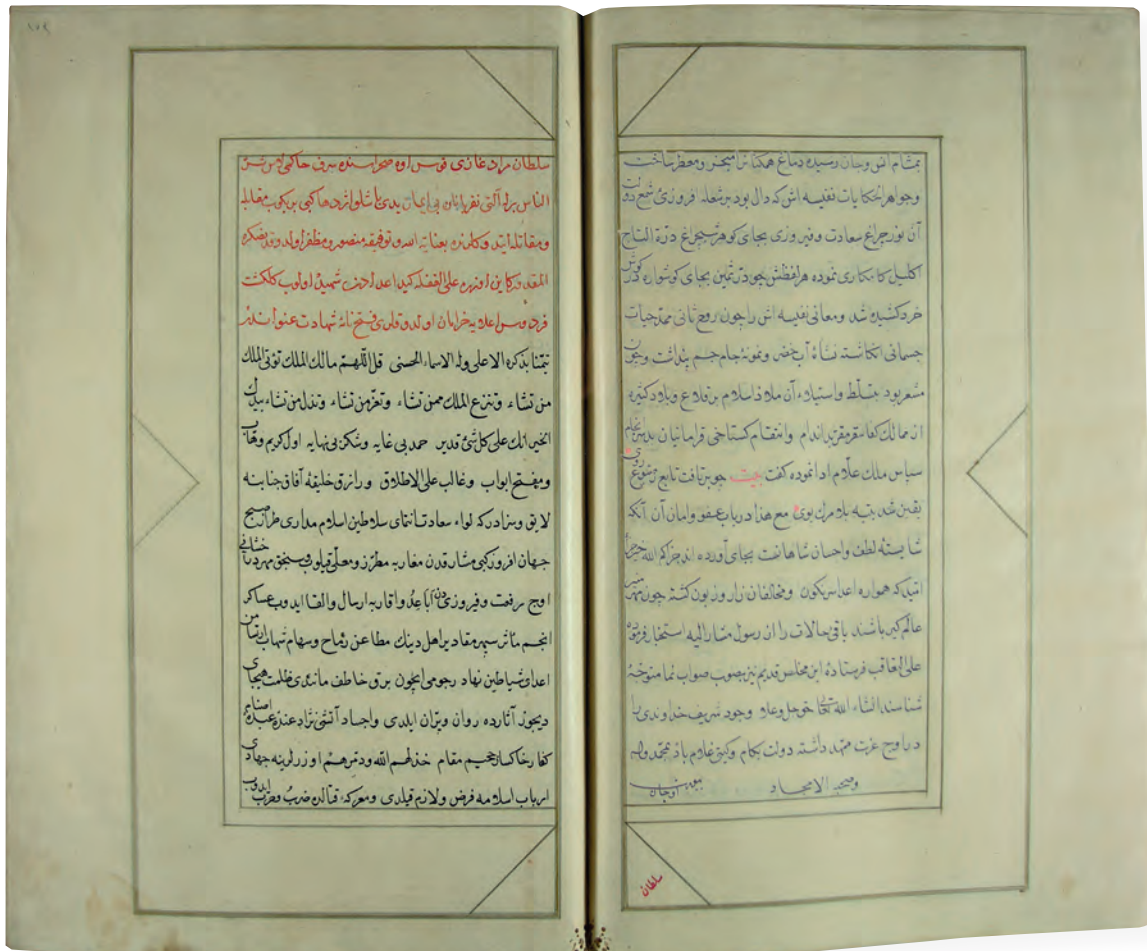 بمشام انس وجان رسیده دماغ همکنانرا مبخر ومعطر ساخت
وجواهر حکایات نفیسه اش که دال بود بر شعله افروزئ شمع دولت
آن نور چراغ سعادت وفیروزی بجای کوهر شبچراغ درّة التاج
اکلیل کامکاری نموده هر لفظش چو درّ ثمین بجای کوشواره در کوش
خرد کشیده شد ومعانی نفیسه اش را چون روح ثانی ممدّ حیات
جسمانی انکاشته نشاۀ آب خضر ونمونۀ جام جم پنداشت وچون
مشعر بود بتسلّط واستیلاء آن ملاذ اسلام بر قلاع وبلاد کثیره
از ممالک کفار سقر مقرّ بد اندام وانتقام کستاخی قرامانیان بد سرانجام
سپاس ملک علّام ادا نموده کفت بیت چو بر تافت تابع ز متبوع روی
یقین شد بتیه بلا مرک بوی مع هذا در باب عفو وامان آن آنکه
شایسته لطف واحسان شاهانست بجای آورده اند جزاکم الله خیراً
امید که همواره اعدا سرنکون ومخالفان زار وزبون کشته چون مهر منیر
عالم کیر باشند باقی حالات را از رسول مشار الیه استخبار فرموده
علی العاقب فرستادۀ این مخلص قدیم نیز بصوب صواب نما متوجّه
شناسند انشاء الله تعالی عزّ وجلّ وعلا وجود شریف خداوندی را
در اوج عزت ممهّد داشته دولت بکام وکیتی غلام باد بمحمّد وآله
وصحبه الامجاد اوجان
سلطان
سلطان مراد غازی قوس اوه صحراسنده سرف حاکمی
الناس برله آلتی نفر
ومقاتله ایدوب بعنایة الله وتوفیقه منصور ومظفر اولدوقدنصکره
المقدر کاین اوزره علی الغفله کید اعدادن شهید اولوب کلکشت
فردوس اعلایه خرامان اولدوقلری فتح نامۀ شهادت عنواندر
تیمّنا بذکره الاعلی وله الاسماء الحسنی قل اللّهمّ مالک الملک تؤتی الملک
من تشاء وتنزع الملک ممّن تشاء وتعزّ من تشاء وتذل من تشاء بیدک
الخیر انک علی کل شئ قدیر حمد بی غایه وشکر بی نهایه اول کریم وهّاب
ومفتح ابواب وغالب علی الاطلاق ورازق خلیقۀ آفاق جنابنه
لایق وسزادر که لواء سعادت انتمای سلاطین اسلام مداری طراز صبح
جهان افروز کبی مشارقدن مغاربه مطرّز ومعلّی قیلوب وسنجق مهر درخشانی
اوج رفعت وفیروزیدن اباعد واقاربه ارسال والقا ایدوب عساکر
انجم مآثر سپهر مقادیر اهل دینک مطاعن رماح وسهام شهاب ارتسامن
اعدای شیاطین نهاد رجومی ایچون برق خاطف مانندی ظلمت هیجای
دیجور آثارده روان وپرّان ایلدی واجساد آتشی نژاد عندۀ عبدۀ اصنام
کفار خاکسار جحیم مقام خذلهم الله ودمّرهم اوزرلرینه جهادی
ارباب اسلامه فرض ولازم قیلدی ومعرکۀ قتالده ضرب وحرب ایدوب